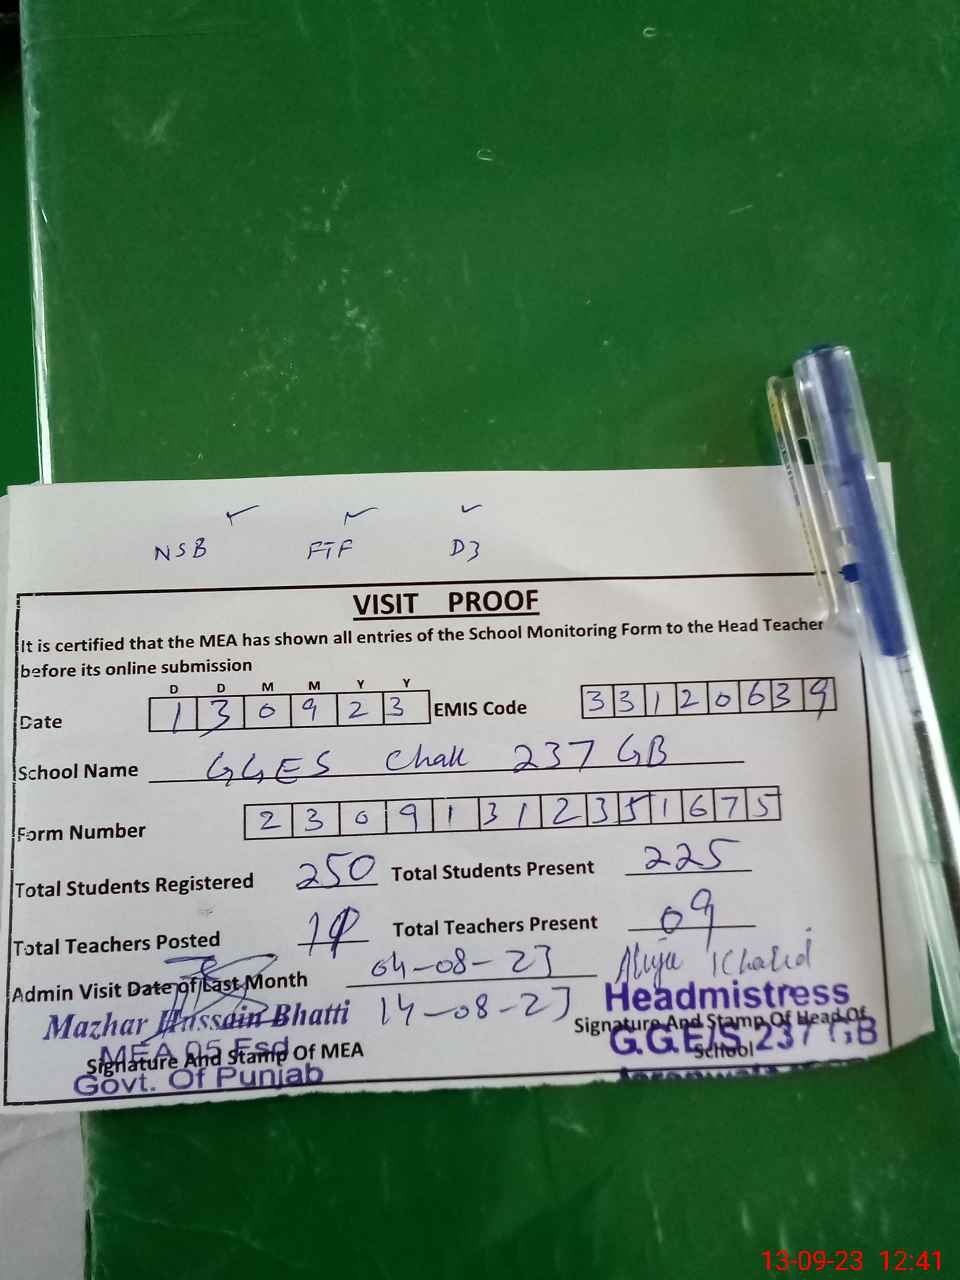 NSB FTF D3
VISIT PROOF
It is certified that the MEA has shown all entries of the School Monitoring Form to the Head Teacher
before its online submission
D D M M Y Y
Date 1 3 0 9 2 3 EMIS Code 3 3 1 2 0 6 3 9
School Name GGES Chak 237 GB
Form Number 2 3 0 9 1 3 1 2 3 5 1 6 7 5
Total Students Registered 250 Total Students Present 225
Total Teachers Posted Total Teachers Present 09
Admin Visit Date of Last Month 04-08-23 Khalid
14-08-23
Mazhar Hussain Bhatti
MEA 05 Fsd
Signature And Stamp Of MEA
Govt. Of Punjab
Headmistress
Signature And Stamp Of Head Of
School
G.G.E/S 237 GB
13-09-23 12:41